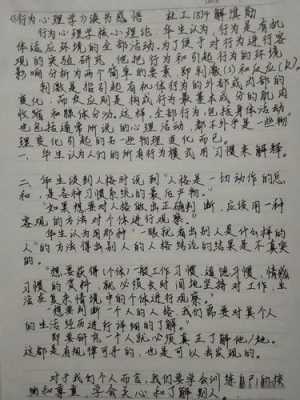 《行为心理学》读书感悟 社工1814 解慎勋
行为心理学核心理论 华生认为,行为是有机
体适应环境的全部活动,为了便于对行为进行客
观的实验研究,他把行为和引起行为的环境
影响分析为两个简单的要素,即刺激(S)和反应(R)。
刺激是指引起有机体行为的外部或内部的
变化,而反应则是构成行为最基本成分的肌肉
收缩和腺体分泌。这样,全部行为包括身体活动
也包括通常所说的心理活动,都不外乎是一些物
理变化引起的另一些物理变化而已。
一、华生认为人们的所有行为模式用习惯来解释。
二、华生谈到人格时说到“人格是一切动作的总
和,是各种习惯系统的最后产物。”
“如果想要对人格做出正确判断,应该用一种
客观的方法对个体进行观察。”
华生认为用那种“一眼就看出是什么样的
人”的方法得出别人的人格结论的结果是不真实
的。
“想要获得(个体)一般工作习惯、道德习惯,情感
习惯的资料,就必须长时间地坚持对工作、生
活在复杂情境中的个体进行观察。”
“想要判断一个人的人格,我们需要对其个人
的生活经历进行详细的了解。”
即要研究一个人就必须真正了解他/她。
这都是有规律可寻的,也是可以去发现的。
对于我们个人而言,我们要学会训练自己的
知和尊重,学会关心和了解别人。